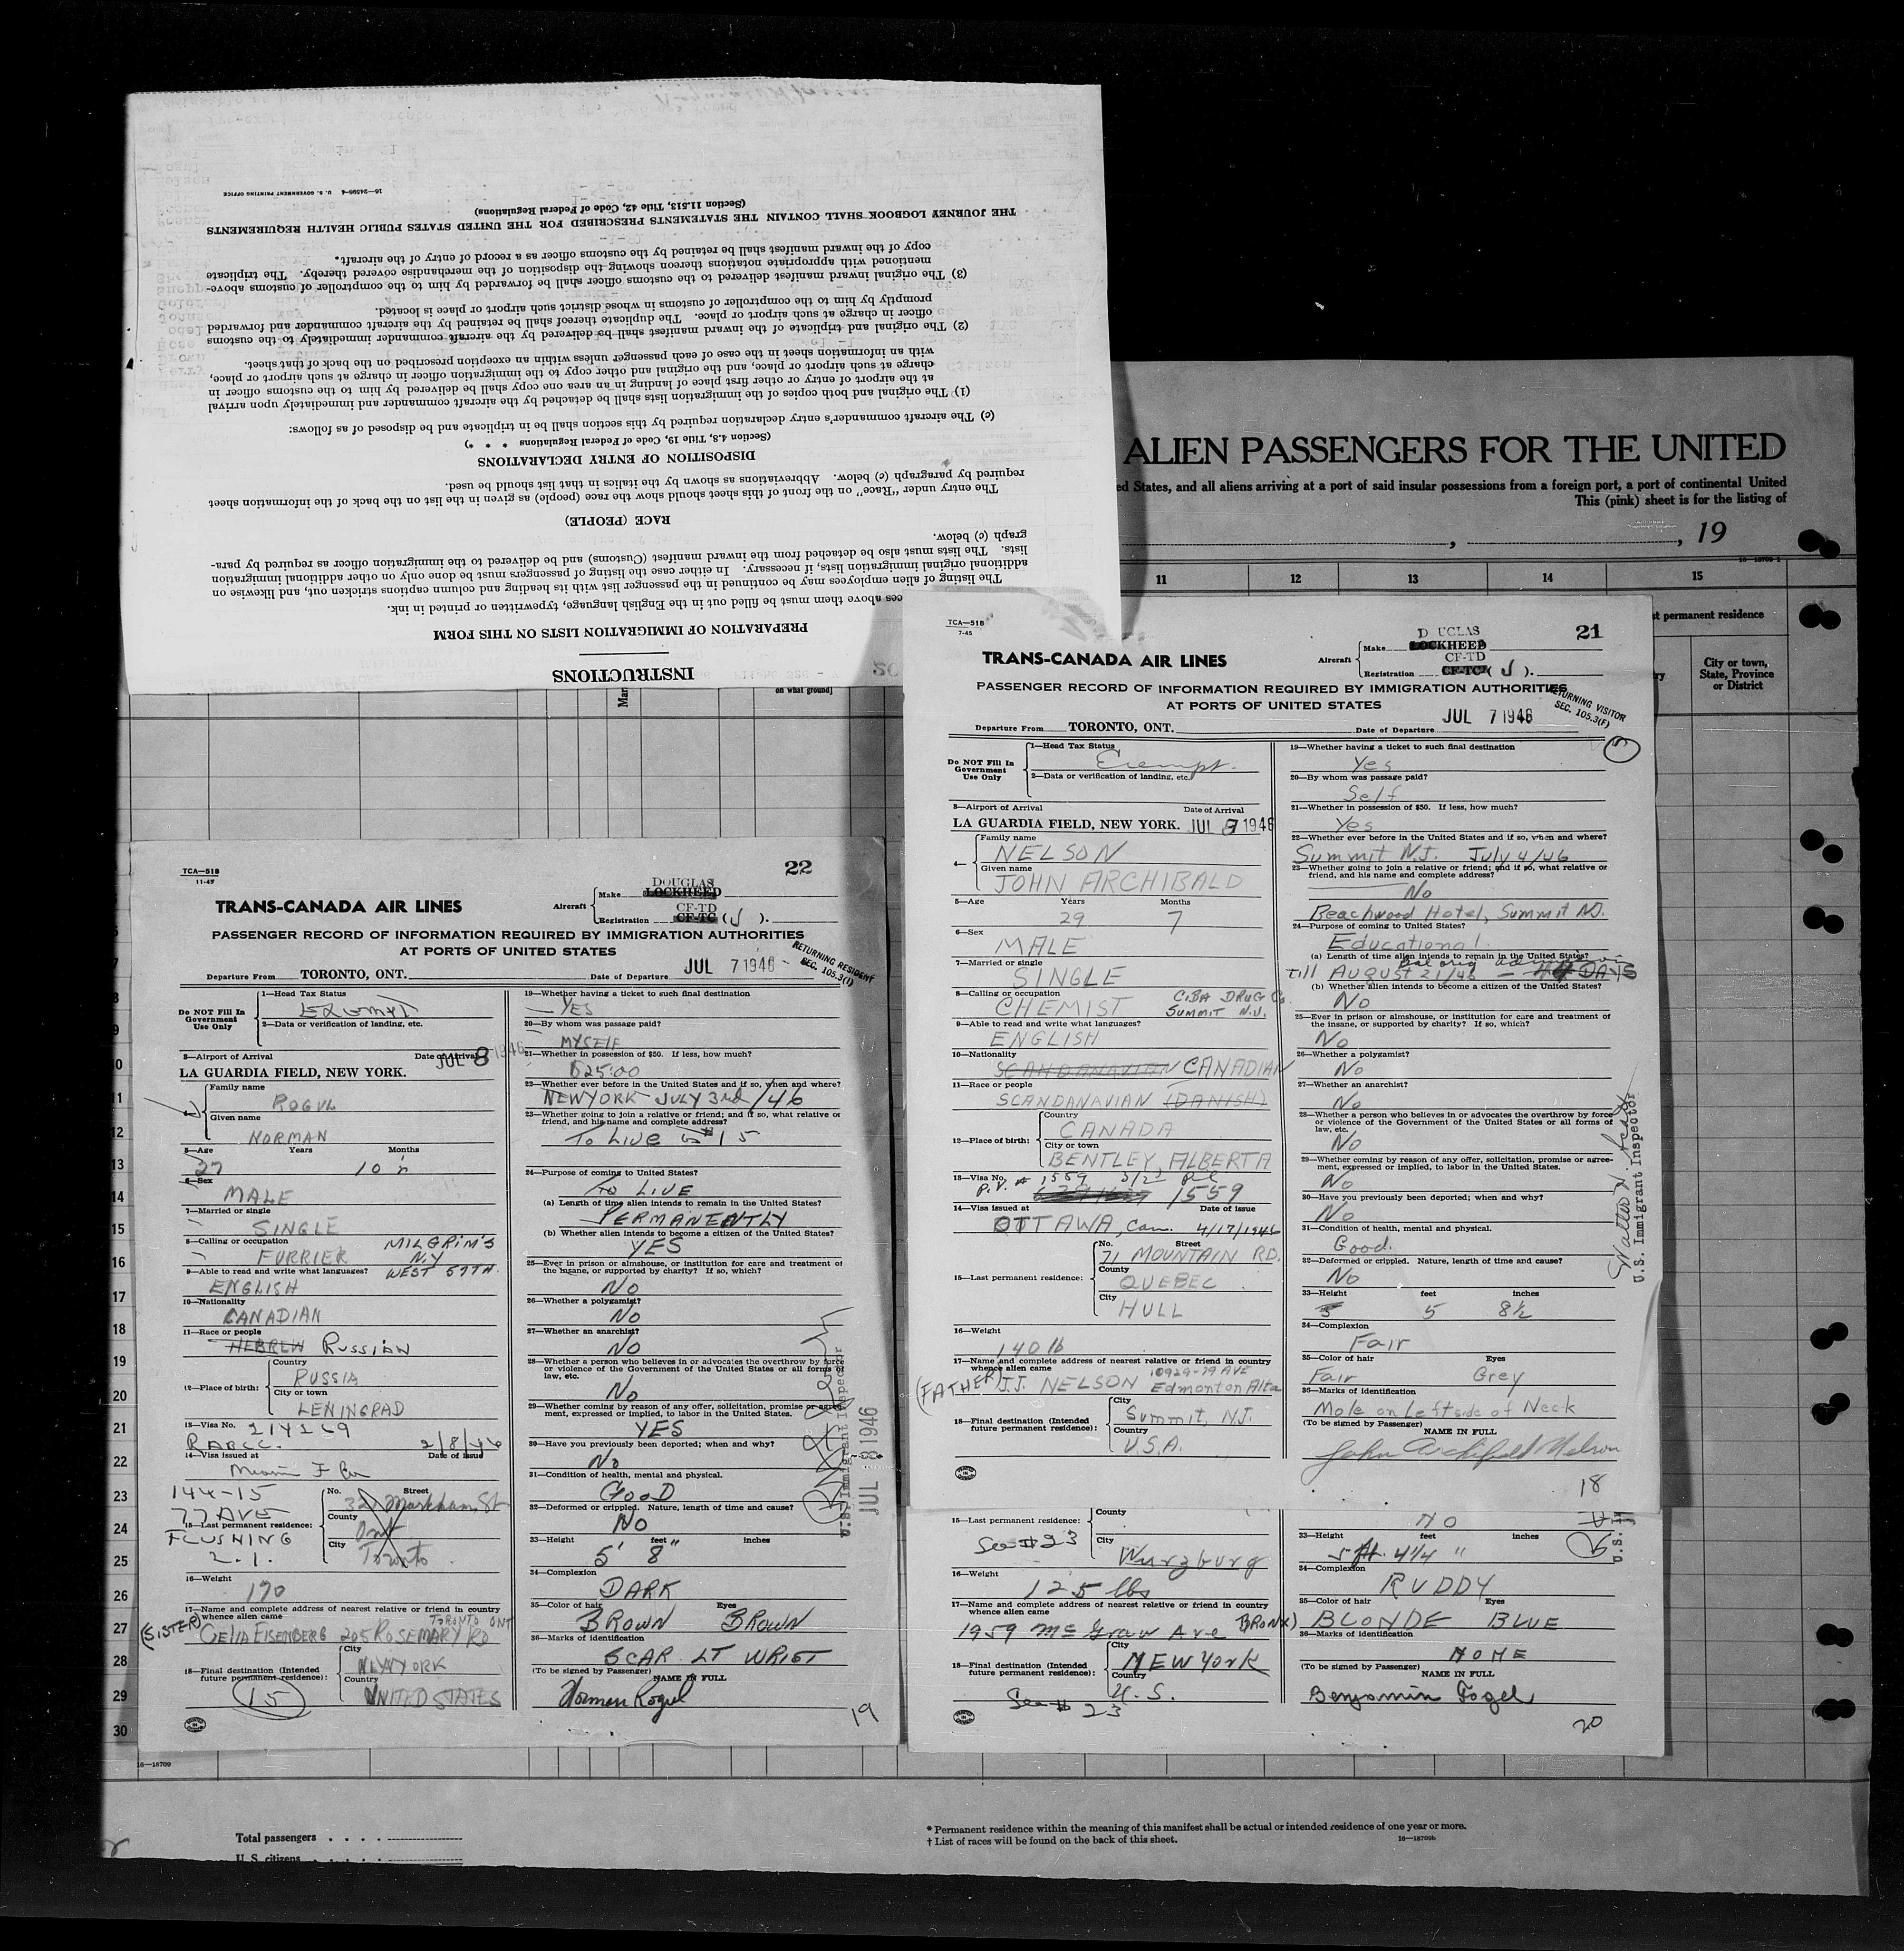 INSTRUCTIONS
PREPARATION OF IMMIGRATION LISTS ON THIS FORM
ces above them must be filled out in the English language, typewritten or printed in ink.
The listing of alien employees may be continued in the passenger list with its heading and column captions stricken out, and likewise on
additional original immigration lists, if necessary. In either case the listing of passengers must be done only on other additional immigration
lists. The lists must also be detached from the inward manifest (Customs) and be delivered to the immigration officer as required by para-
graph (c) below.
RACE (PEOPLE)
The entry under "Race" on the front of this sheet should show the race (people) as given in the list on the back of the information sheet
required by paragraph (c) below. Abbreviations as shown by the italics in that list should be used.
DISPOSITION OF ENTRY DECLARATIONS
(Section 4.8, Title 19, Code of Federal Regulations * * *)
(c) The aircraft commander's entry declaration required by this section shall be in triplicate and be disposed of as follows:
(1) The original and both copies of the immigration lists shall be detached by the aircraft commander and immediately upon arrival
at the airport of entry or other first place of landing in an area one copy shall be delivered by him to the customs officer in
charge at such airport or place, and the original and other copy to the immigration officer in charge at such airport or place,
with an information sheet in the case of each passenger unless within an exception prescribed on the back of that sheet.
(2) The original and triplicate of the inward manifest shall be delivered by the aircraft commander immediately to the customs
officer in charge at such airport or place. The duplicate thereof shall be retained by the aircraft commander and forwarded
promptly by him to the comptroller of customs in whose district such airport or place is located.
(3) The original inward manifest delivered to the customs officer shall be forwarded by him to the comptroller of customs above-
mentioned with appropriate notations thereon showing the disposition of the merchandise covered thereby. The triplicate
copy of the inward manifest shall be retained by the customs officer as a record of entry of the aircraft.
THE JOURNEY LOGBOOK SHALL CONTAIN THE STATEMENTS PRESCRIBED FOR THE UNITED STATES PUBLIC HEALTH REQUIREMENTS
(Section 11.513, Title 42, Code of Federal Regulations)
16—24598-4 U. S. GOVERNMENT PRINTING OFFICE
ALIEN PASSENGERS FOR THE UNITED
ed States, and all aliens arriving at a port of said insular possessions from a foreign port, a port of continental United
This (pink) sheet is for the listing of
, , 19
11 12 13 14 15
st permanent residence
City or town,
State, Province
or District
on what ground]
TCA—518
7-45
21
TRANS-CANADA AIR LINES
Aircraft
Make DOUGLAS LOCKHEED
Registration CF-TD CF-TC (J).
PASSENGER RECORD OF INFORMATION REQUIRED BY IMMIGRATION AUTHORITIES
AT PORTS OF UNITED STATES
RETURNING VISITOR
SEC. 105.3(F)
Departure From TORONTO, ONT. Date of Departure JUL 7 1946
Do NOT Fill In
Government
Use Only
1—Head Tax Status
Exempt.
2—Data or verification of landing, etc.
3—Airport of Arrival Date of Arrival
LA GUARDIA FIELD, NEW YORK. JUL 7 1946
4— Family name
NELSON
Given name
JOHN ARCHIBALD
5—Age Years Months
29 7
6—Sex
MALE
7—Married or single
SINGLE
8—Calling or occupation
CHEMIST CIBA DRUG Co.
SUMMIT N.J.
9—Able to read and write what languages?
ENGLISH
10—Nationality
SCANDANAVIAN CANADIAN
11—Race or people
SCANDANAVIAN (DANISH)
12—Place of birth:
Country
CANADA
City or town
BENTLEY, ALBERTA
13—Visa No.
P.V. # 1559
1559
14—Visa issued at Date of issue
OTTAWA, Can. 4/17/1946
15—Last permanent residence:
No. Street
71 MOUNTAIN RD.
County
QUEBEC
City
HULL
16—Weight
140 lb
17—Name and complete address of nearest relative or friend in country
whence alien came
10929-79 AVE
(FATHER) J.J. NELSON Edmonton Alta
18—Final destination (Intended
future permanent residence):
City
Summit, N.J.
Country
U.S.A.
19—Whether having a ticket to such final destination
Yes
20—By whom was passage paid?
Self
21—Whether in possession of $50. If less, how much?
Yes
22—Whether ever before in the United States and if so, when and where?
Summit N.J. July 4/46
23—Whether going to join a relative or friend; and if so, what relative or
friend, and his name and complete address?
No
Beachwood Hotel, Summit NJ.
24—Purpose of coming to United States?
Educational.
(a) Length of time alien intends to remain in the United States?
till AUGUST 21/46 — 44 DAYS
(b) Whether alien intends to become a citizen of the United States?
No
25—Ever in prison or almshouse, or institution for care and treatment of
the insane, or supported by charity? If so, which?
No
26—Whether a polygamist?
No
27—Whether an anarchist?
No
28—Whether a person who believes in or advocates the overthrow by force
or violence of the Government of the United States or all forms of
law, etc.
No
29—Whether coming by reason of any offer, solicitation, promise or agree-
ment, expressed or implied, to labor in the United States.
No
30—Have you previously been deported; when and why?
No
31—Condition of health, mental and physical.
Good.
32—Deformed or crippled. Nature, length of time and cause?
No
33—Height feet inches
5 5 8½
34—Complexion
Fair
35—Color of hair Eyes
Fair Grey
36—Marks of identification
Mole on Left side of Neck
(To be signed by Passenger)
NAME IN FULL
John Archibald Nelson
18
U.S. Immigrant Inspector
TCA—518
11-45
22
TRANS-CANADA AIR LINES
Aircraft
Make DOUGLAS LOCKHEED
Registration CF-TD CF-TC (J).
PASSENGER RECORD OF INFORMATION REQUIRED BY IMMIGRATION AUTHORITIES
AT PORTS OF UNITED STATES
RETURNING RESIDENT
SEC. 105.3(I)
Departure From TORONTO, ONT. Date of Departure JUL 7 1946
Do NOT Fill In
Government
Use Only
1—Head Tax Status
Exempt
2—Data or verification of landing, etc.
3—Airport of Arrival Date of Arrival
LA GUARDIA FIELD, NEW YORK. JUL 8 1946
Family name
ROGUL
Given name
NORMAN
5—Age Years Months
27 10
6—Sex
MALE
7—Married or single
SINGLE
8—Calling or occupation
FURRIER MILGRIM'S
N.Y
WEST 57TH.
9—Able to read and write what languages?
ENGLISH
10—Nationality
CANADIAN
11—Race or people
HEBREW RUSSIAN
12—Place of birth:
Country
RUSSIA
City or town
LENINGRAD
13—Visa No. 214269
2/8/46
14—Visa issued at Date of issue
144-15
77 AVE
FLUSHING
L.I.
15—Last permanent residence:
No. Street
321 Markham St
County
Ont
City
Toronto
16—Weight
170
17—Name and complete address of nearest relative or friend in country
whence alien came
TORONTO ONT
(SISTER) CELIA EISENBERG 205 ROSEMARY RD
18—Final destination (Intended
future permanent residence):
15
City
NEW YORK
Country
UNITED STATES
19—Whether having a ticket to such final destination
YES
20—By whom was passage paid?
MYSELF
21—Whether in possession of $50. If less, how much?
$25.00
22—Whether ever before in the United States and if so, when and where?
NEW YORK - JULY 3rd/46
23—Whether going to join a relative or friend; and if so, what relative or
friend, and his name and complete address?
To LIVE # 15
24—Purpose of coming to United States?
To LIVE
(a) Length of time alien intends to remain in the United States?
PERMANENTLY
(b) Whether alien intends to become a citizen of the United States?
YES
25—Ever in prison or almshouse, or institution for care and treatment of
the insane, or supported by charity? If so, which?
No
26—Whether a polygamist?
No
27—Whether an anarchist?
NO
28—Whether a person who believes in or advocates the overthrow by force
or violence of the Government of the United States or all forms of
law, etc.
No
29—Whether coming by reason of any offer, solicitation, promise or agree-
ment, expressed or implied, to labor in the United States.
YES
30—Have you previously been deported; when and why?
No
31—Condition of health, mental and physical.
GOOD
32—Deformed or crippled. Nature, length of time and cause?
NO
33—Height feet inches
5' 8"
34—Complexion
DARK
35—Color of hair Eyes
BROWN BROWN
36—Marks of identification
SCAR LT WRIST
(To be signed by Passenger)
NAME IN FULL
Norman Rogul
19
U.S. Immigrant Inspector
JUL 8 1946
15—Last permanent residence:
See #23
County
City
Wurzburg
16—Weight
125 lbs
17—Name and complete address of nearest relative or friend in country
whence alien came
1959 McGraw Ave BRONX)
18—Final destination (Intended
future permanent residence):
See # 23
City
NEW YORK
Country
U.S.
NO
33—Height feet inches
5 ft. 4¼ "
34—Complexion
RUDDY
35—Color of hair Eyes
BLONDE BLUE
36—Marks of identification
NONE
(To be signed by Passenger)
NAME IN FULL
Benjamin Fogel
20
8
9
10
11
12
13
14
15
16
17
18
19
20
21
22
23
24
25
26
27
28
29
30
16—18709
Total passengers . . . .
U.S. citizens . . . . .
* Permanent residence within the meaning of this manifest shall be actual or intended residence of one year or more.
† List of races will be found on the back of this sheet.
16—18709b